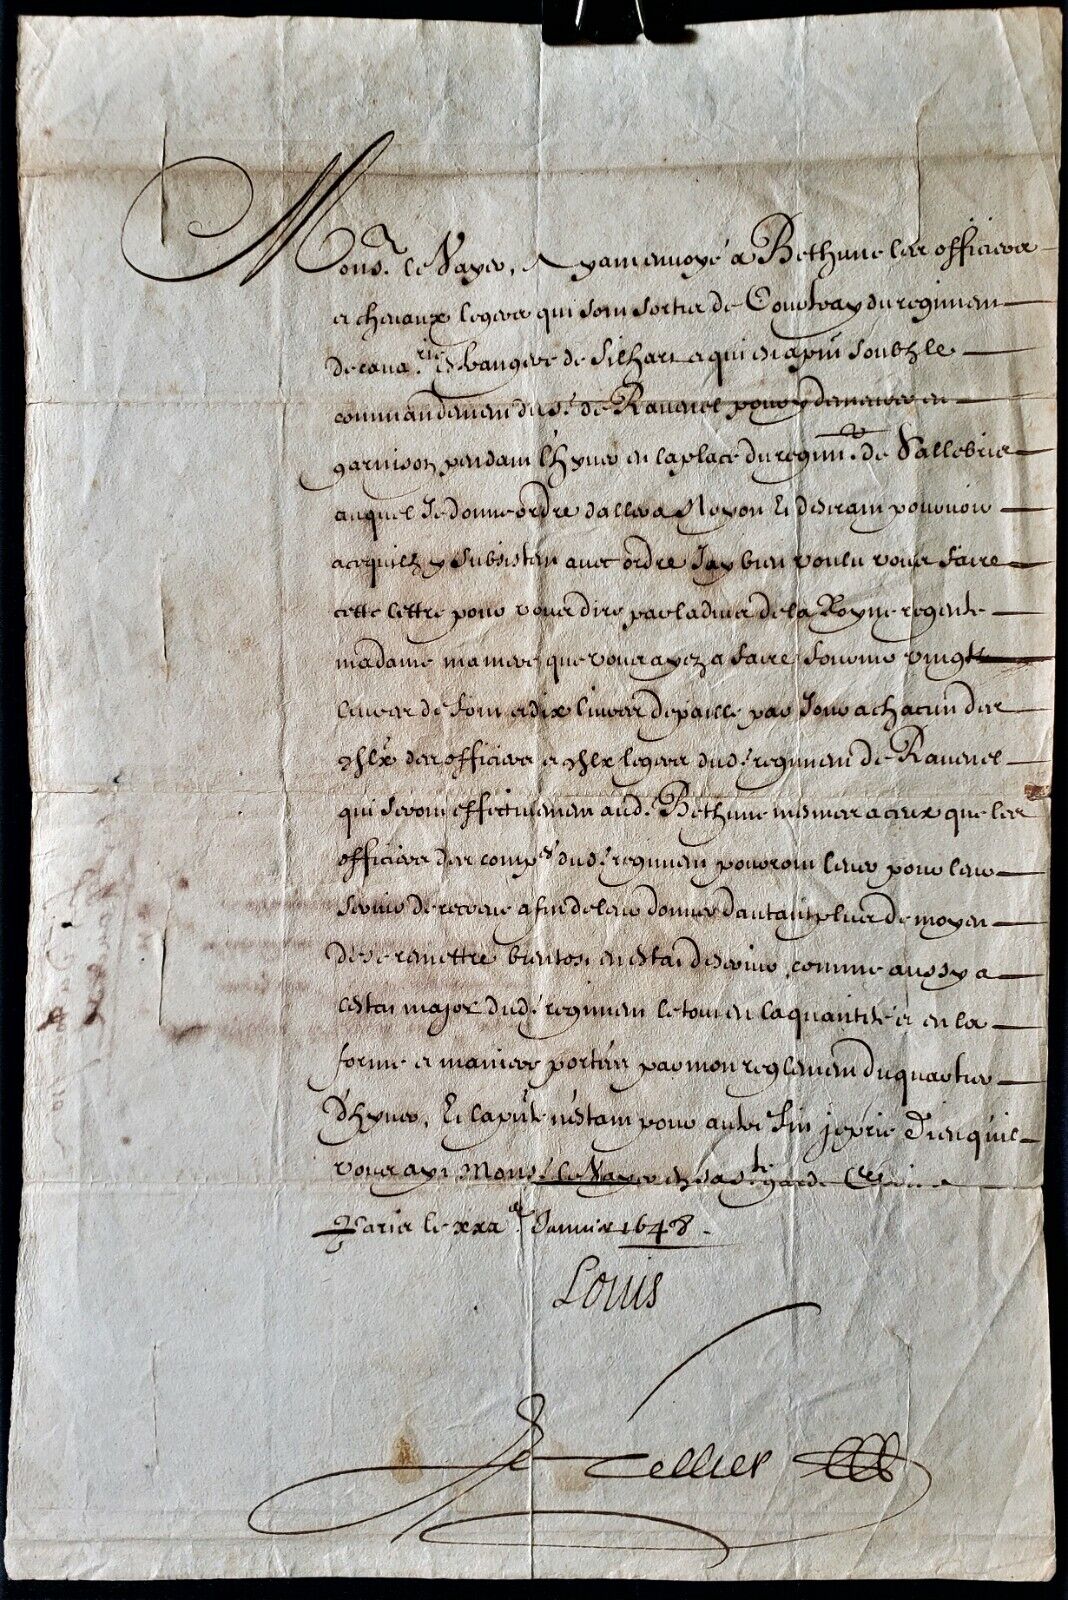 Mons.r le Vayer, Ayant envoyé a Bethune les officiers
et chevaux legers qui sont sortis de Courtray du regiment
de cava.rie estrangere de Silhart et qui est a pnt soubz le
commandement du s.r de Ravenel pour y demeurer en
garnison pendant l'hyver en la place du regim.t de Vallebrie
auquel Je donne ordre d'aller a Noyon Et desirant pourvoir
a ce quilz y subsistent avec ordre Jay bien voulu vous faire
cette lettre pour vous dire par ladvis de la Royne regente
madame ma mere, que vous ayez a faire fournir vingt
livres de foin et dix livres de paille par Jour a chacun des
chlx des officiers et chlx legers dud.t regiment de Ravenel
qui seront effectivement aud.t Bethune mesmes a ceux que les
officiers des comp.es dud.t regiment pourront lever pour leur
servir de recreue afin de leur donner dautant plus de moyen
de se remettre bientost en estat de servir, comme aussy a
lestat major dud.t regiment le tout en la quantité et en la
forme et maniere portée par mon reglement du quartier
d'hyver, Et la pnte nestant pour autre fin je prie Dieu quil
vous ayt Mons.r le Vayer en sa s.te garde Escrit a
Paris le xxx.e Janvier 1648.
Louis
Le Tellier